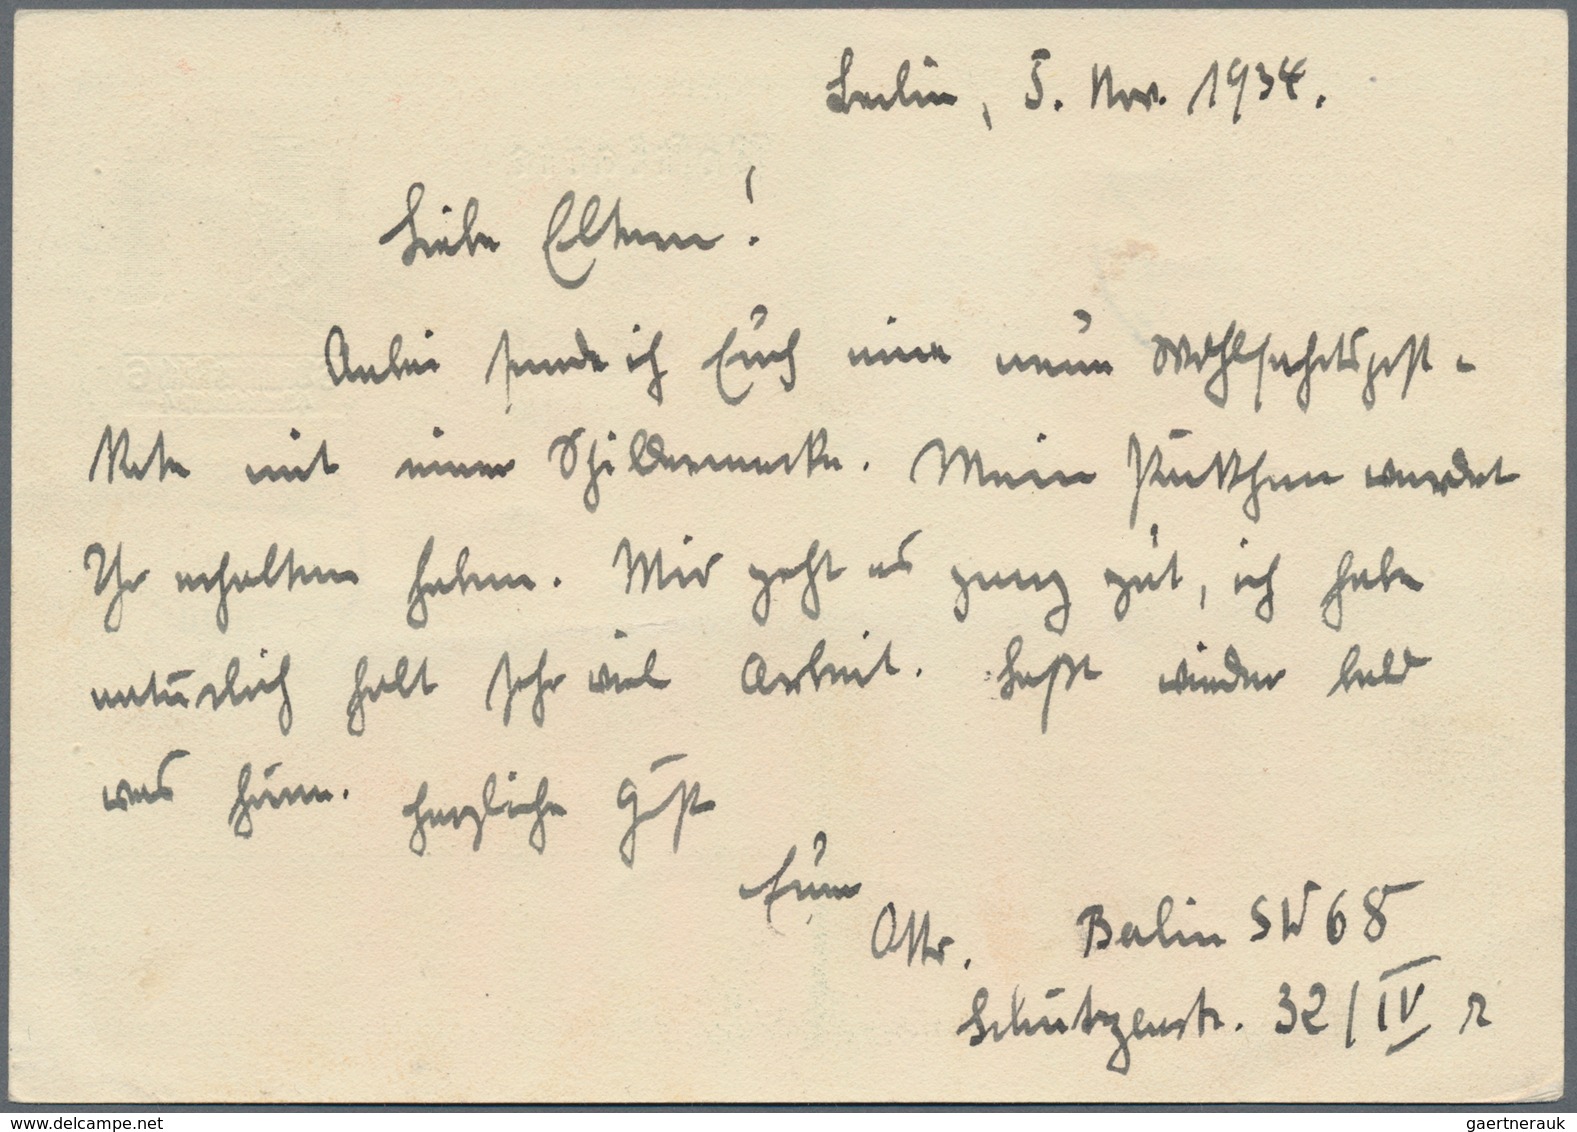 Berlin, 5. Nov. 1934.
Liebe Eltern!
Anbei sende ich Euch eine neue Wohlfahrtspost-
karte mit einer Schillermarke. Mein Päckchen werdet
Ihr erhalten haben. Mir geht es ganz gut, ich habe
natürlich halt sehr viel Arbeit. Laßt wieder bald
was hören. Herzliche Grüße
Euer
Otto. Berlin SW 68
Schützenstr. 32/IV r
gaertnerauk
www.delcampe.net